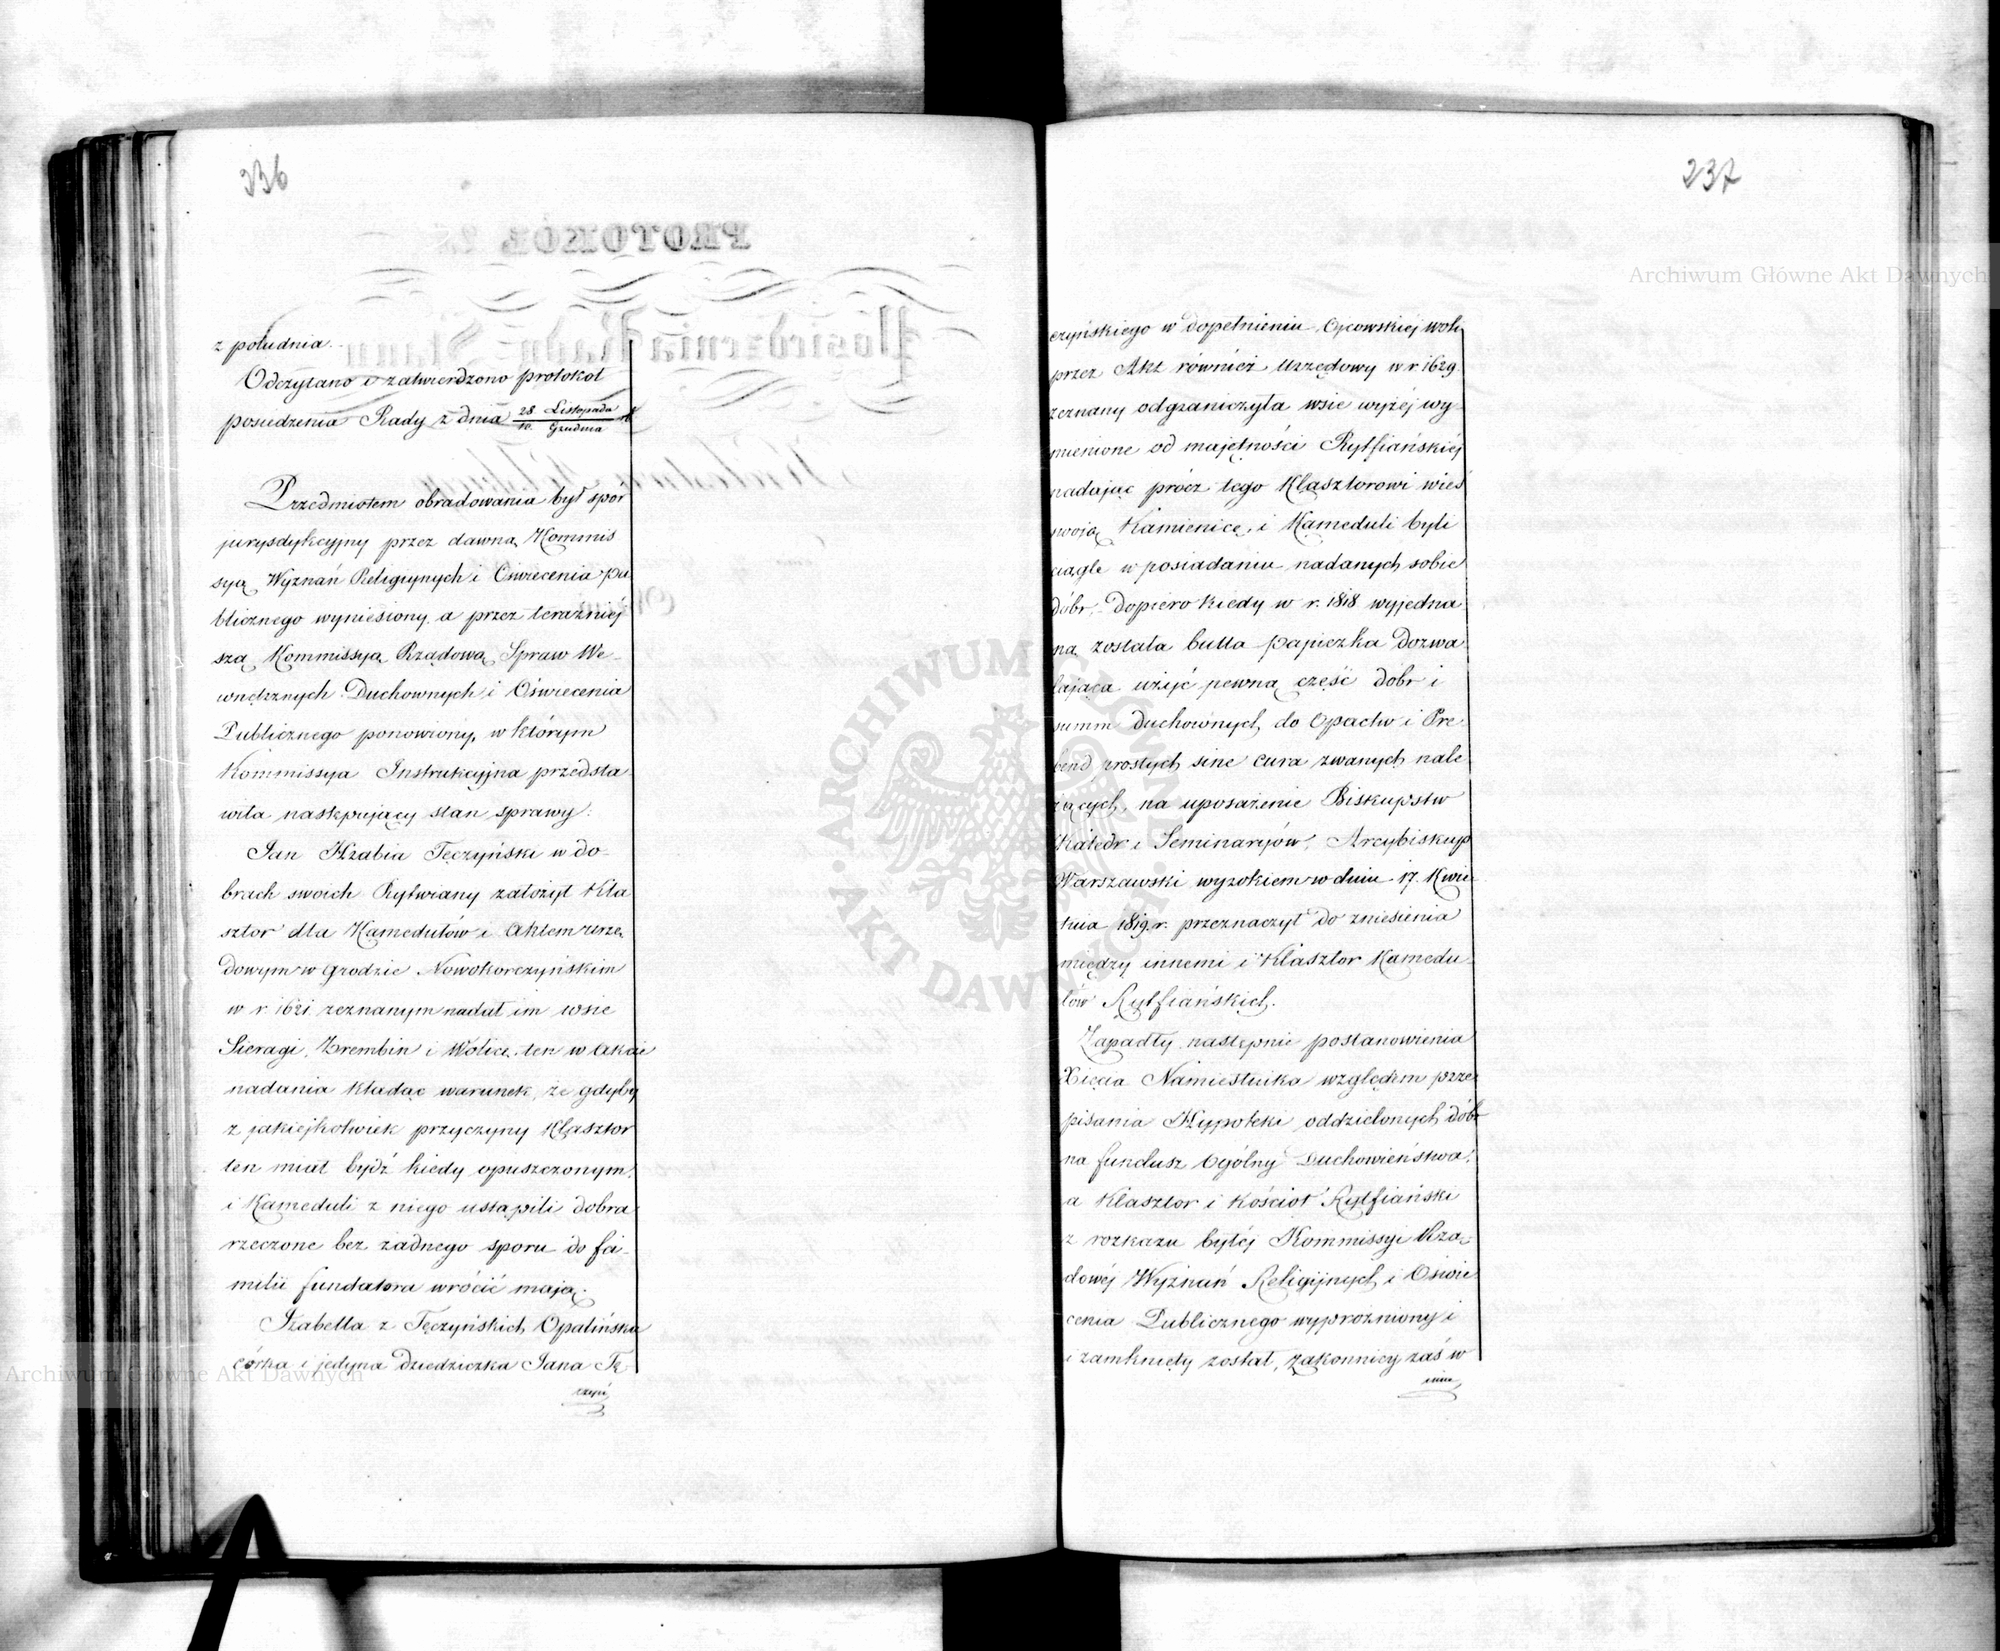 236
z południa.
Odczytano i zatwierdzono protokoł
posiedzenia Rady z dnia 28 Listopada
10. Grudnia
Przedmiotem obradowania był spor
jurysdykcyjny przez dawną Kommis
syą Wyznań Religijnych i Oświecenia pu
blicznego wyniesiony, a przez teraźniéj
szą Kommissyą Rządową Spraw We-
wnętrznych Duchownych i Oświecenia
Publicznego ponowiony, w którym
Kommissya Instrukcyjna przedsta
wiła następujący stan sprawy:
Jan Hrabia Tęczyński w do-
brach swoich Rytwiany założył Kla
sztor dla Kamedułów i Aktem urzę
dowym w Grodzie Nowokorczyńskim
w r. 1621. zeznanym nadał im wsie
Sieragi, Zrembin i Wolicę, ten w Akcie
nadania kładąc warunek, że gdyby
z jakiejkolwiek przyczyny Klasztor
ten miał bydź kiedy opuszczonym,
i Kameduli z niego ustąpili dobra
rzeczone bez żadnego sporu do fa-
milii fundatora wrócić mają.
Izabella z Tęczyńskich Opalińska
córka i jedyna dziedziczka Jana Tę-
czyń
237
czyńskiego w dopełnieniu Oycowskiej woli
przez Akt również Urzędowy w r. 1629.
zeznany odgraniczyła wsie wyżéj wy-
mienione od majętności Rytfiańskiéj
nadając prócz tego Klasztorowi wieś
swoją Kamienicę, i Kameduli byli
ciągle w posiadaniu nadanych sobie
dóbr. Dopiero kiedy w r. 1818 wyjedna
na została bulla papiezka dozwa
lająca użyć pewną część dóbr i
summ duchownych, do Opactw i Pre
bend prostych sine cura zwanych nale
żących, na uposażenie Biskupstw
Katedr i Seminaryów, Arcybiskup
Warszawski wyrokiem w dniu 17. Kwie
tnia 1819. r. przeznaczył do zniesienia
między innemi i Klasztor Kamedu
łów Rytfiańskich.
Zapadły następnie postanowienia
Xięcia Namiestnika względem prze
pisania Hypoteki oddzielonych dóbr
na fundusz Ogólny Duchowieństwa,
a Klasztor i Kościoł Rytfiański
z rozkazu byłéj Kommissyi Rzą-
dowéj Wyznań Religijnych i Oświe
cenia Publicznego wyprożniony i
i zamknięty został, zakonnicy zaś w
inne
Archiwum Główne Akt Dawnych
Archiwum Główne Akt Dawnych
ARCHIWUM GŁÓWNE AKT DAWNYCH